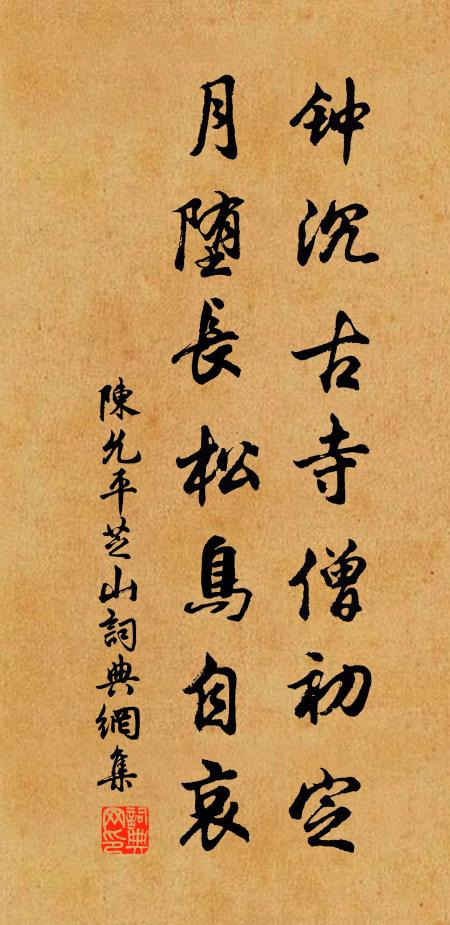 钟沉古寺僧初定
月堕長松鳥自哀
陳允平芝山詞典網集
詞典網印